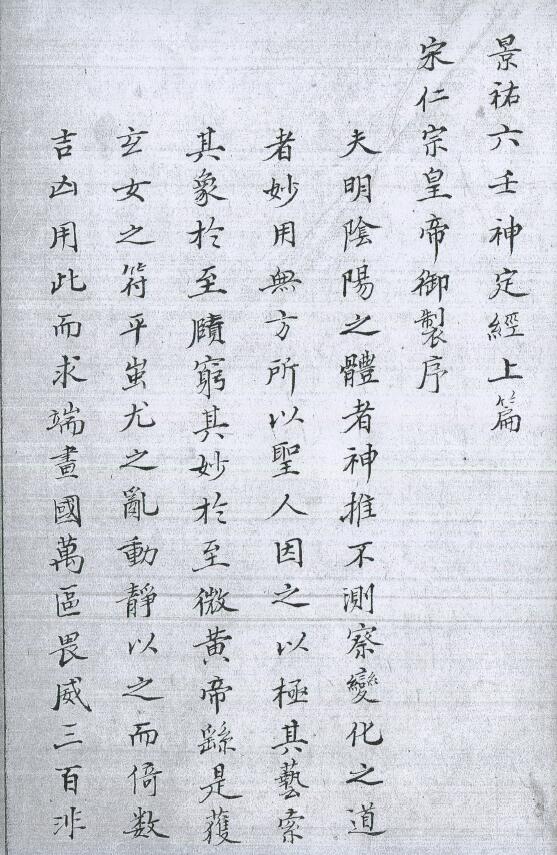 景祐六壬神定經上篇
宋仁宗皇帝御製序
夫明陰陽之體者神推不測察變化之道
者妙用無方所以聖人因之以極其藝索
其象於至賾窮其妙於至微黃帝繇是獲
玄女之符平蚩尤之亂動靜以之而倚數
吉凶用此而求端畫國萬區畏威三百洲